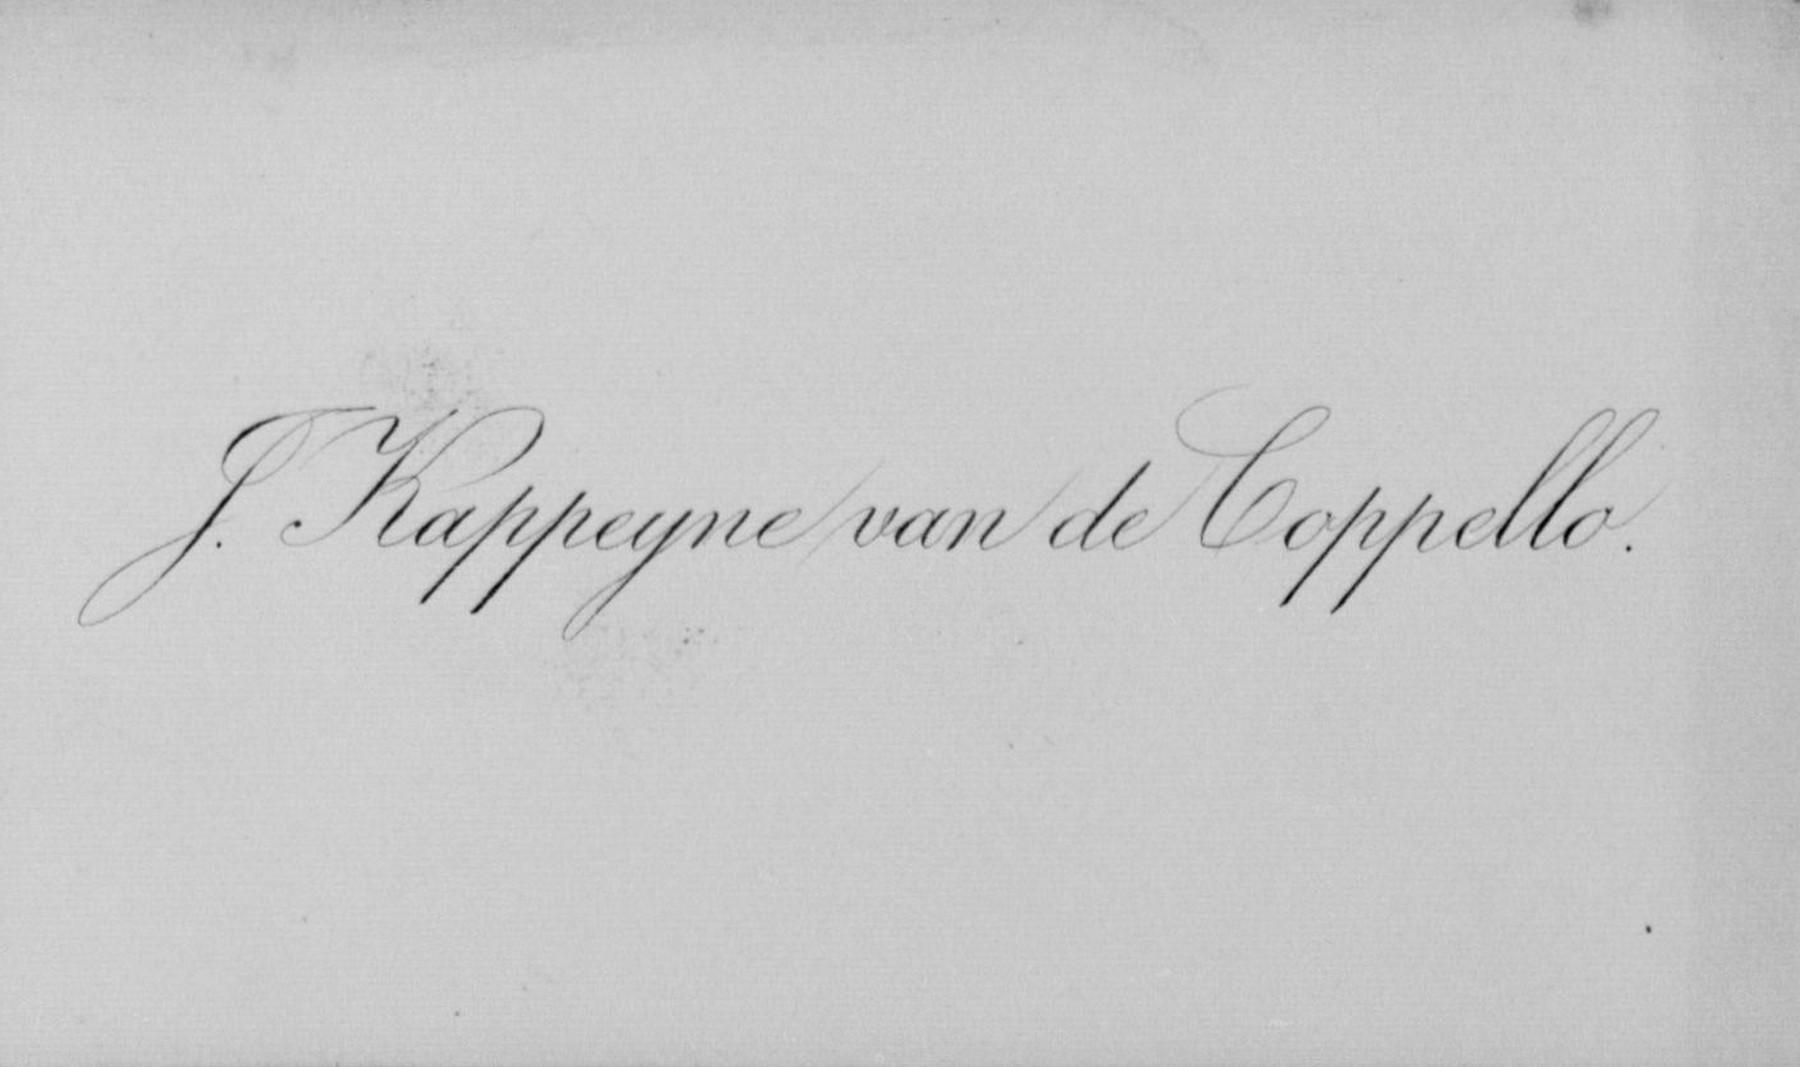 J. Kappeyne van de Coppello.